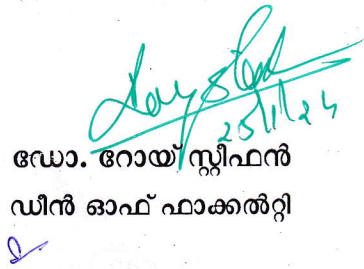 25/1/24
ഡോ. റോയ് സ്റ്റീഫൻ
ഡീൻ ഓഫ് ഫാക്കൽറ്റി